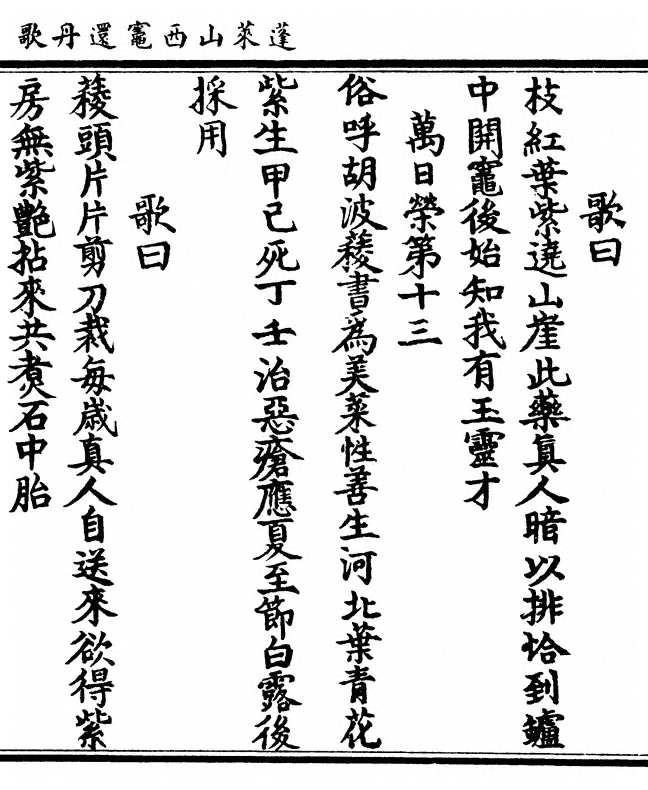 蓬萊山西竈還丹歌
歌曰
枝紅葉紫遶山崖此藥真人暗以排恰到鑪
中開竈後始知我有玉靈才
萬日榮第十三
俗呼胡波薐書為美菜性善生河北葉青花
紫生甲己死丁壬治惡瘡應夏至節白露後
採用
歌曰
薐頭片片剪刀栽每歲真人自送來欲得紫
房無紫艷拈來共煑石中胎